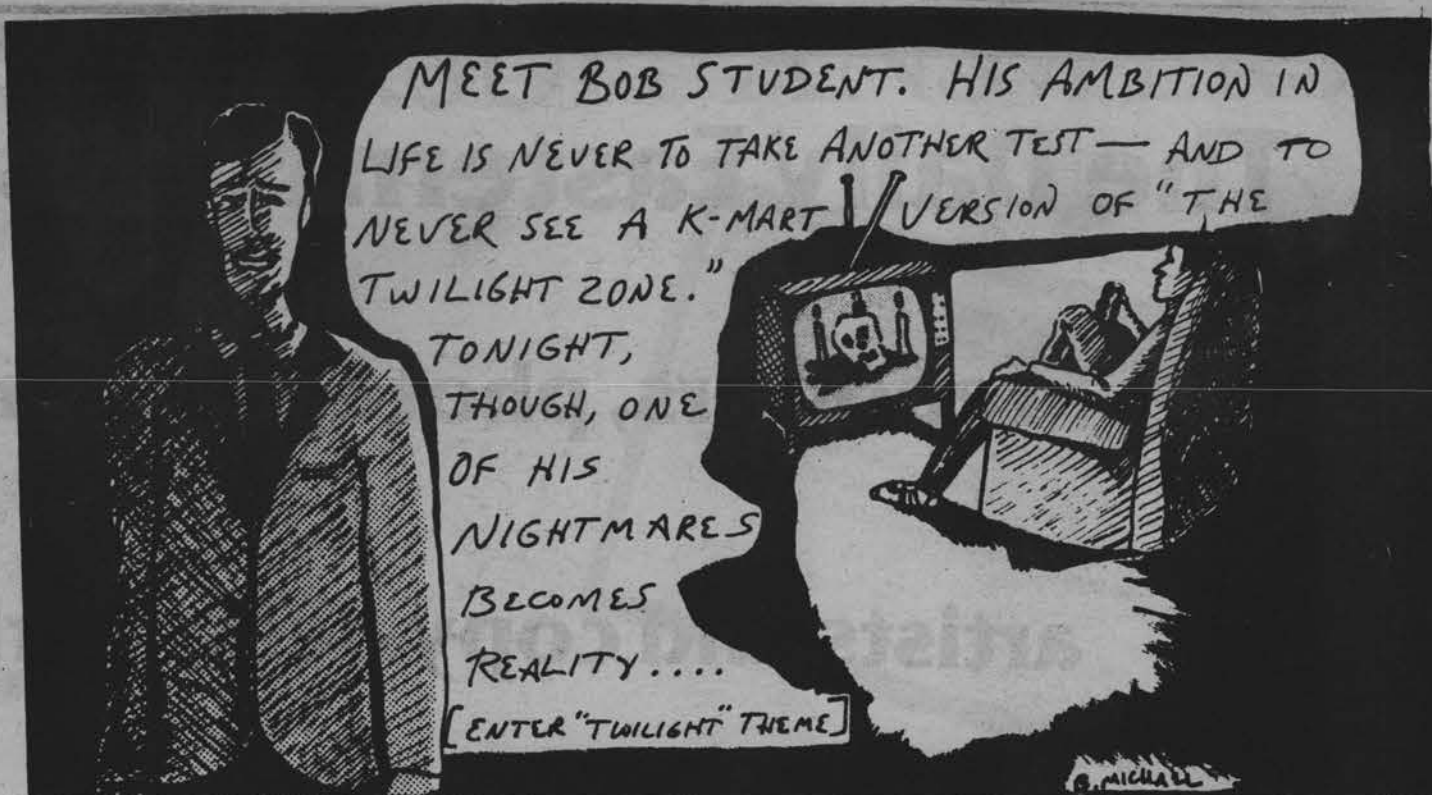 MEET BOB STUDENT. HIS AMBITION IN
LIFE IS NEVER TO TAKE ANOTHER TEST — AND TO
NEVER SEE A K-MART VERSION OF "THE
TWILIGHT ZONE."
TONIGHT,
THOUGH, ONE
OF HIS
NIGHTMARES
BECOMES
REALITY....
[ENTER "TWILIGHT" THEME]
B. MICHAEL